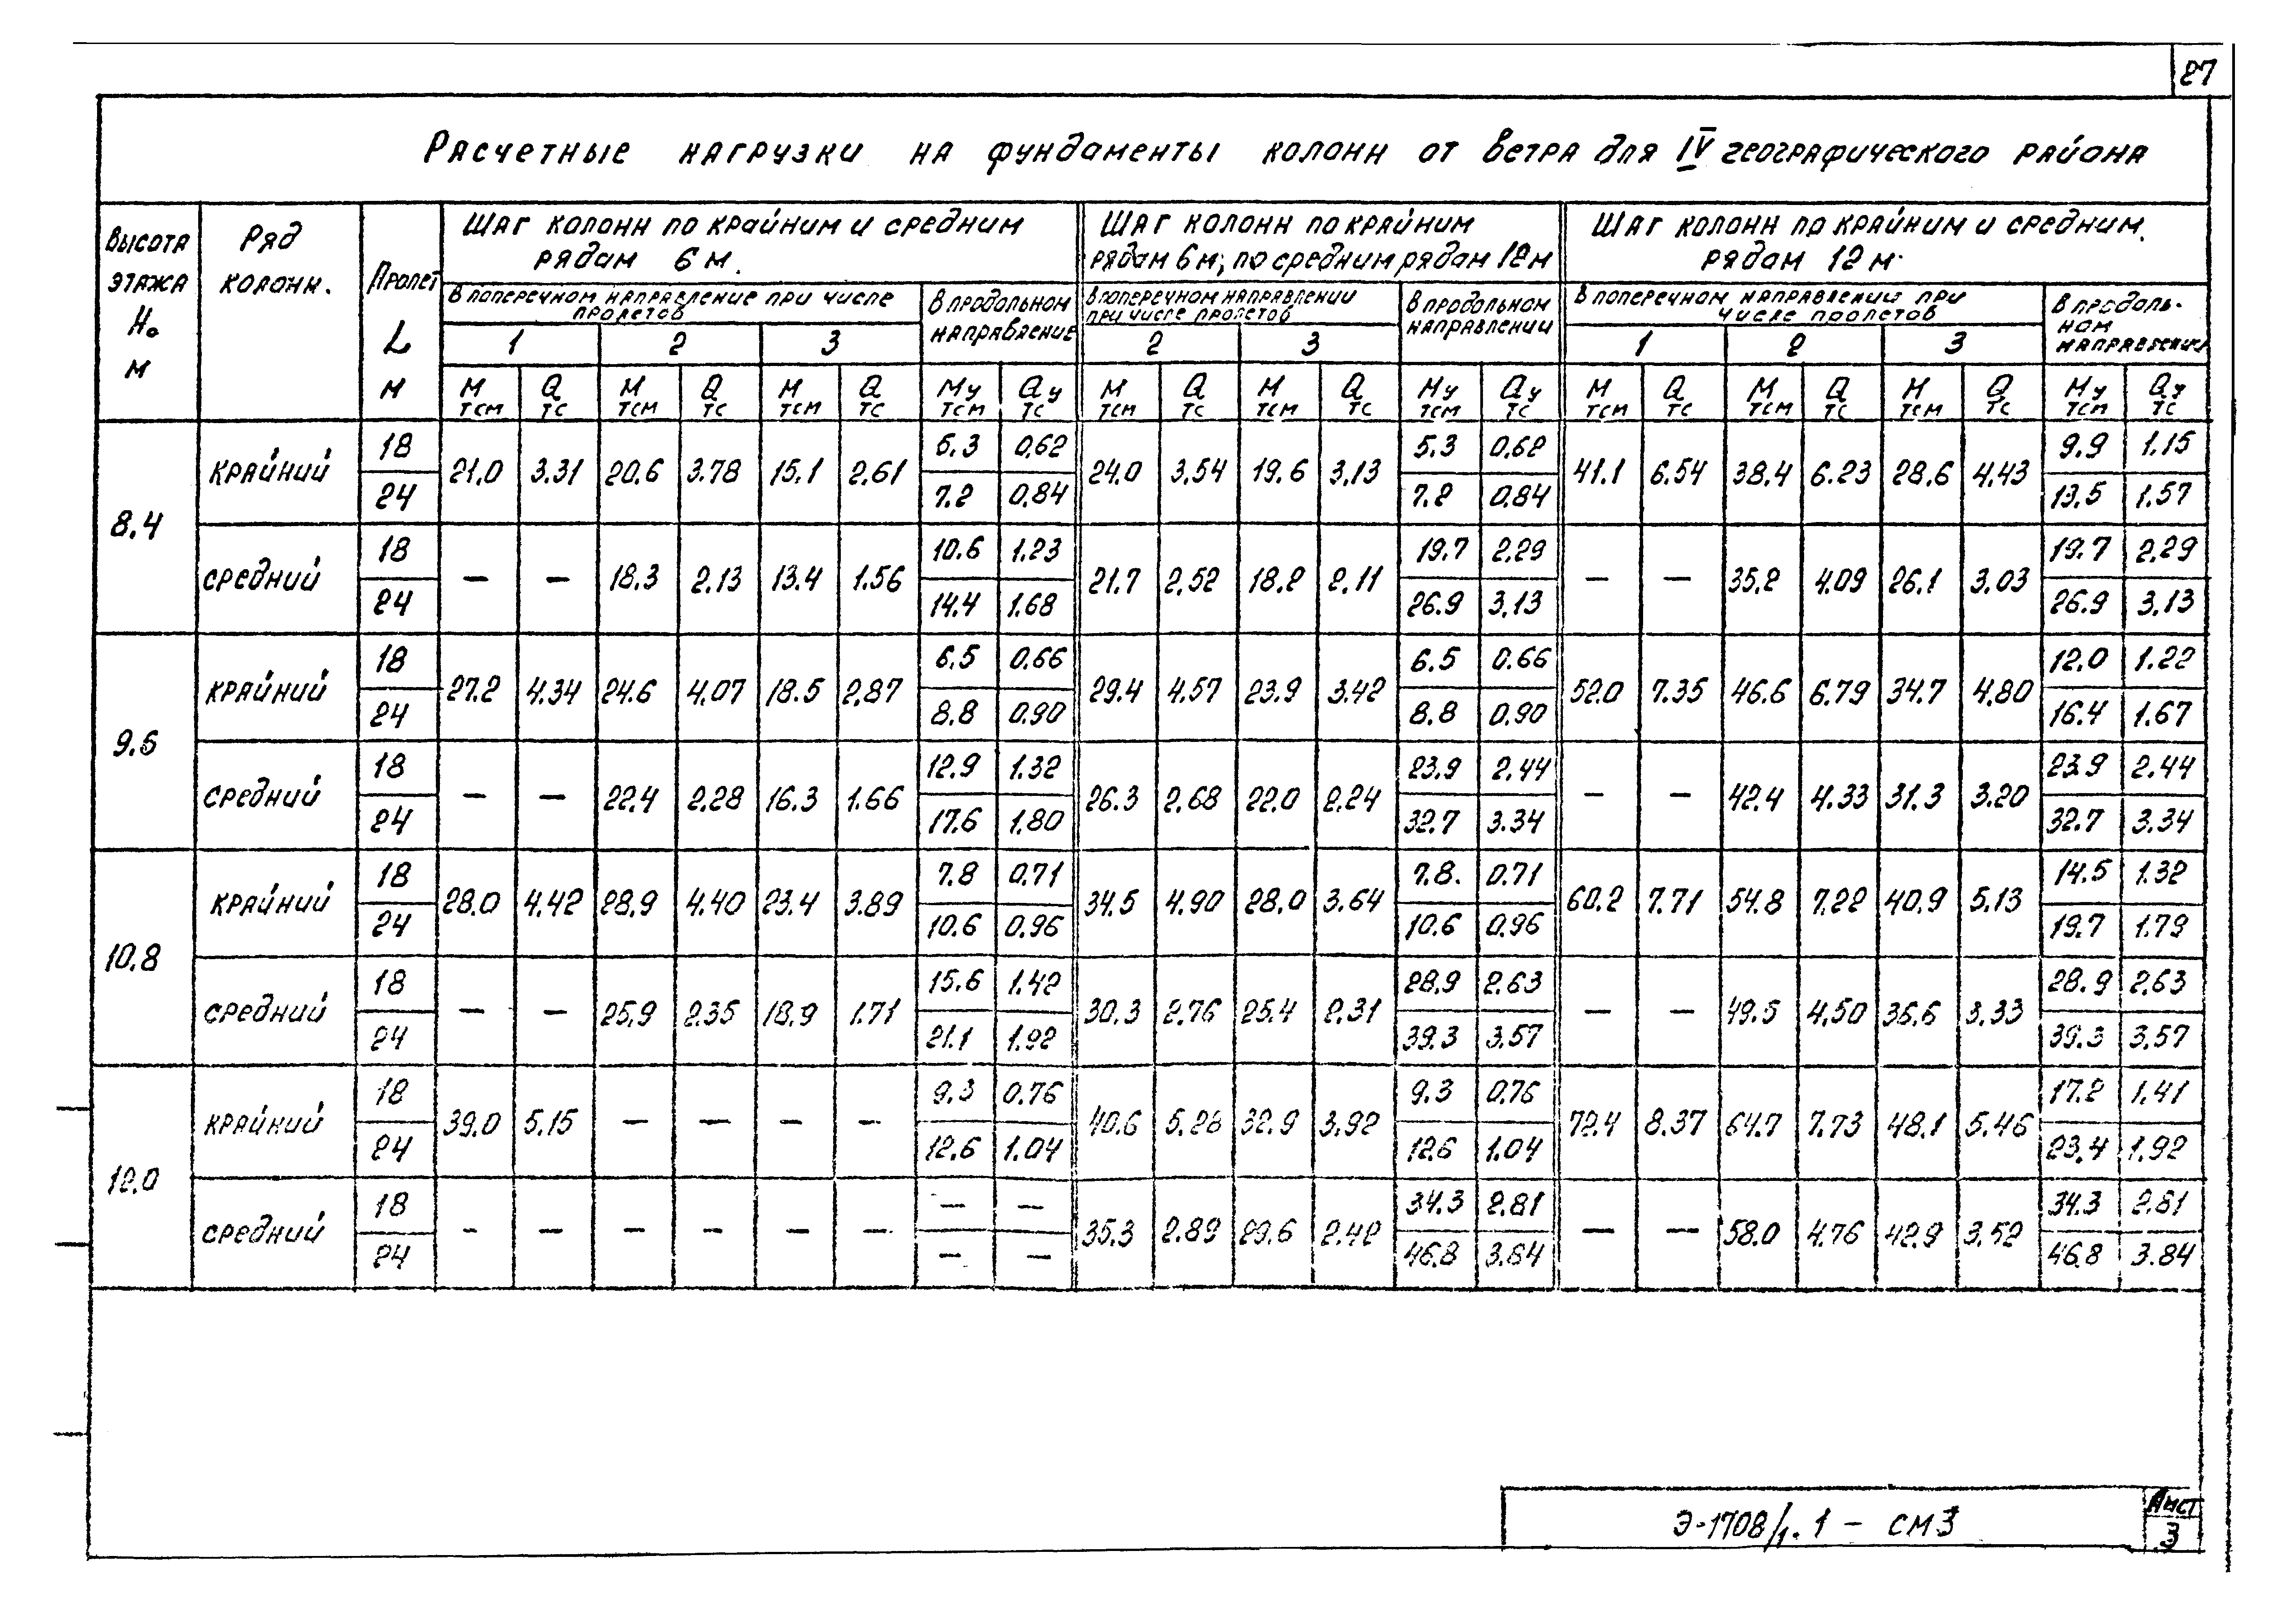 27
Расчетные нагрузки на фундаменты колонн от ветра для IV географического района
Высота этажа Н₀ м
Ряд колонн.
Пролет L м
Шаг колонн по крайним и средним рядам 6 м.
Шаг колонн по крайним рядам 6 м, по средним рядам 12 м
Шаг колонн по крайним и средним рядам 12 м.
В поперечном направление при числе пролетов
В продольном направление
В поперечном направлении при числе пролетов
В продольном направлении
В поперечном направлении при числе пролетов
В продольном направлении
1 2 3 2 3 1 2 3
М тсм Q тс М тсм Q тс М тсм Q тс Му тсм Qу тс М тсм Q тс М тсм Q тс Му тсм Qу тс М тсм Q тс М тсм Q тс М тсм Q тс Му тсм Qу тс
8.4 крайний 18 21.0 3.31 20.6 3.78 15.1 2.61 5.3 0.62 24.0 3.54 19.6 3.13 5.3 0.62 41.1 6.54 38.4 6.23 28.6 4.43 9.9 1.15
24 7.2 0.84 7.2 0.84 13.5 1.57
средний 18 — — 18.3 2.13 13.4 1.56 10.6 1.23 21.7 2.52 18.2 2.11 19.7 2.29 — — 35.2 4.09 26.1 3.03 19.7 2.29
24 14.4 1.68 26.9 3.13 26.9 3.13
9.6 крайний 18 27.2 4.34 24.6 4.07 18.5 2.87 6.5 0.66 29.4 4.57 23.9 3.42 6.5 0.66 52.0 7.35 46.6 6.79 34.7 4.80 12.0 1.22
24 8.8 0.90 8.8 0.90 16.4 1.67
средний 18 — — 22.4 2.28 16.3 1.66 12.9 1.32 26.3 2.68 22.0 2.24 23.9 2.44 — — 42.4 4.33 31.3 3.20 23.9 2.44
24 17.6 1.80 32.7 3.34 32.7 3.34
10.8 крайний 18 28.0 4.42 28.9 4.40 23.4 3.89 7.8 0.71 34.5 4.90 28.0 3.64 7.8. 0.71 60.2 7.71 54.8 7.22 40.9 5.13 14.5 1.32
24 10.6 0.96 10.6 0.96 19.7 1.79
средний 18 — — 25.9 2.35 18.9 1.71 15.6 1.42 30.3 2.76 25.4 2.31 28.9 2.63 — — 49.5 4.50 36.6 3.33 28.9 2.63
24 21.1 1.92 39.3 3.57 39.3 3.57
12.0 крайний 18 39.0 5.15 — — — — 9.3 0.76 40.6 5.28 32.9 3.92 9.3 0.76 72.4 8.37 64.7 7.73 48.1 5.46 17.2 1.41
24 12.6 1.04 12.6 1.04 23.4 1.92
средний 18 — — — — — — — — 35.3 2.89 29.6 2.42 34.3 2.81 — — 58.0 4.76 42.9 3.52 34.3 2.81
24 — — 46.8 3.84 46.8 3.84
Э-1708/1.1 – СМ3
Лист
3